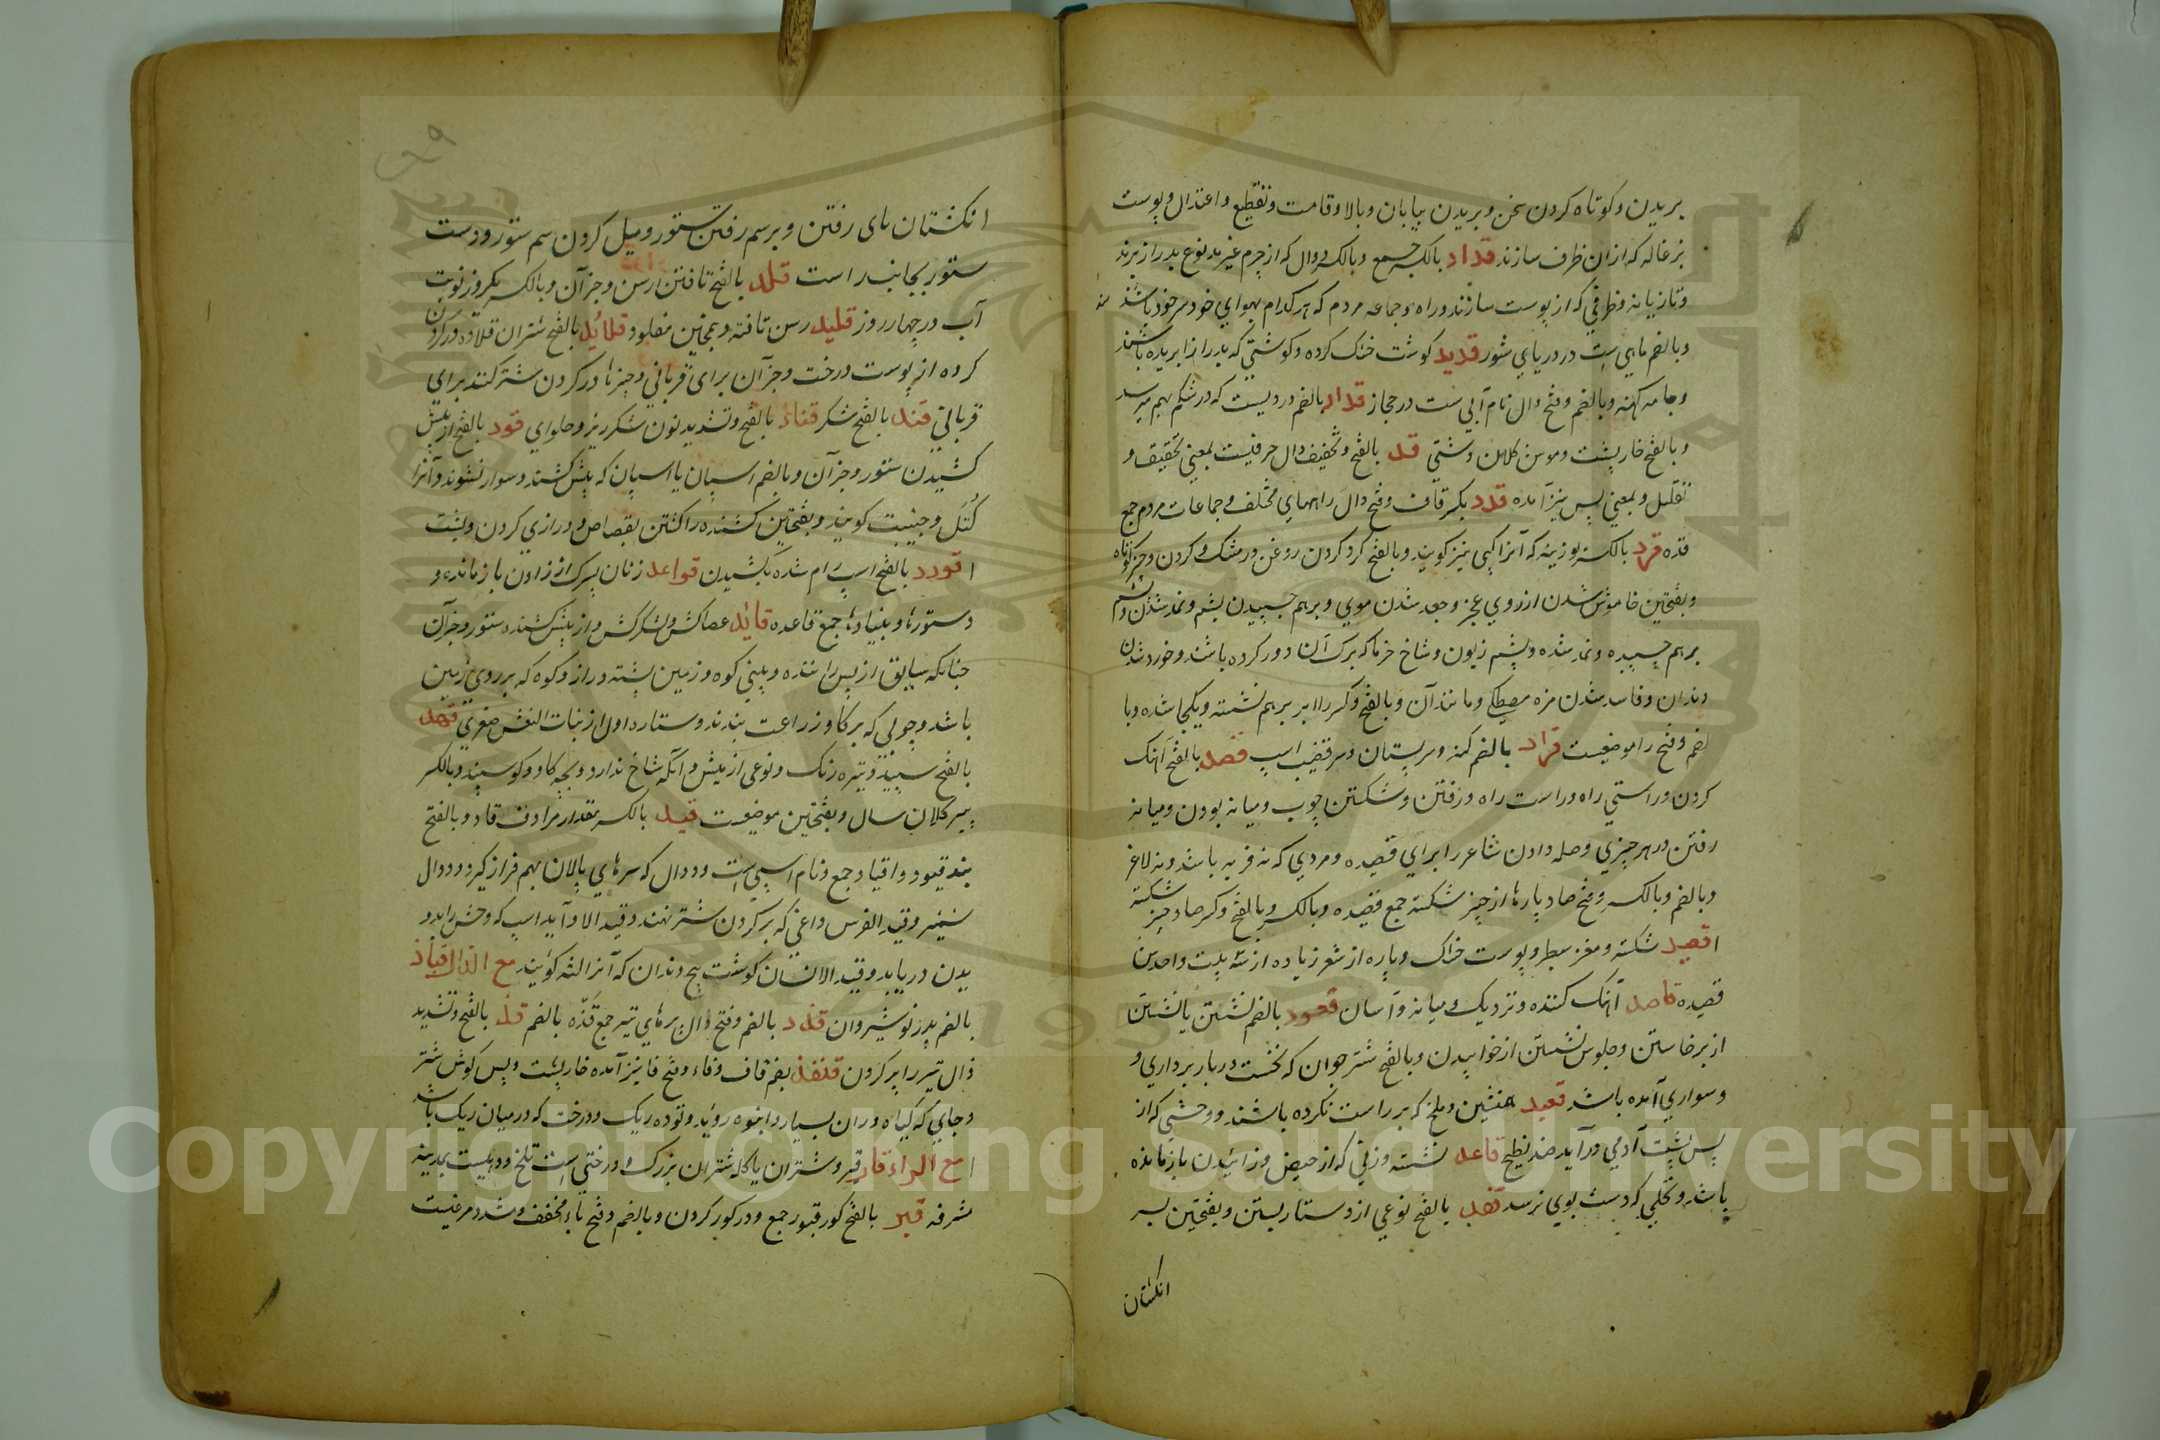 بریدن و کوتاه کردن سخن و بریدن بیابان و بالا و قامت و تقطیع و اعتدال و پوست
بزغاله که ازان ظرف سازند قداد بالکسر جمع و بالکسر دوال که از چرم غیر مدبوغ بدرازا برند
و تازیانه و ظرفی که از پوست سازند و راه و جماعه مردم که هر کدام بهوای خود سر خود باشند
و بالضم ماهی است در دریای شور قدید گوشت خشک کرده و گوشتی که بدرازا بریده باشند
و جامه کهنه و بالضم و فتح دال نام آبی ست در حجاز قداد بالضم دردیست که در شکم بهم میرسد
و بالفتح خارپشت و موش کلان دشتی قد بالفتح و تخفیف دال حرفیست بمعنی تحقیق و
تقلیل و بمعنی بس نیز آمده قدد بکسر قاف و فتح دال راههای مختلف و جماعات مردم جمع
قده قرد بالکسر بوزینه که آنرا کپی نیز گویند و بالفتح گرد کردن روغن در مشک و کردن و چیز کوتاه
و بفتحتین خاموش شدن از روی عجز و جعد شدن موی و برهم چسپیدن پشم و نمد شدن و پشم
برهم چسپیده و نمد شده و پشم زبون و شاخ خرما که برگ آن دور کرده باشند و خورد شدن
دندان و فاسد شدن مزه مصطکی و مانند آن و بالفتح و کسر را ابر برهم نشسته و یکجا شده و با
لضم و فتح را موضعیست قراد بالضم کنه و سر پستان و سر قضیب اسپ قصد بالفتح آهنگ
کردن و راستی راه و راست راه و رفتن و شکستن چوب و میانه بودن و میانه
رفتن در هر چیزی و صله دادن شاعر را برای قصیده و مردی که نه فربه باشد و نه لاغر
و بالضم و بالکسر و فتح صاد پارها از چیز شکسته جمع قصیده و بالکسر و بالفتح و کسر صاد چیز شکسته
اقصید شکسته و مغز سطبر و پوست خشک و پاره از شعر زیاده از سه بیت واحدش
قصیده قاصد آهنگ کننده و نزدیک و میانه و آسان قعود بالضم نشستن یا نشستن
از برخاستن و جلوس نشستن از خوابیدن و بالفتح شتر جوان که نخست در بار برداری و
و سواری آمده باشد قعید همنشین و ملخ که پر راست نکرده باشند و وحشی که از
پس پشت آدمی درآید ضد نطیح قاعد نشسته و زنی که از حیض و زائیدن بازمانده
باشد و نخلی که دست بوی نرسد قفد بالفتح نوعی از دستار بستن و بفتحتین بسر
انگشتان
انگشتان پای رفتن و برسم رفتن ستور و میل کردن سم ستور و دست
ستور بجانب راست قلد بالفتح تافتن رسن و جز آن و بالکسر یکروز نوبت
آب در چهار روز قلید رسن تافته و همچنین مقلود قلائد بالفتح شتران قلاده در گردن
کرده از پوست درخت و جز آن برای قربانی و چیزها در گردن شتر کنند برای
قربانی قند بالفتح شکر قناد بالفتح و تشدید نون شکر ریز و حلوای قود بالفتح از پیش
کشیدن ستور و جز آن و بالضم اسپان یا اسپان که پیش کشند و سوار نشوند و آنرا
کتل و جنیبت گویند و بفتحتین کشنده را کشتن بقصاص و درازی گردن و پشت
اقودد بالفتح اسپ رام شده بکشیدن قواعد زنان بزرگ از زادن بازمانده و
دستورها و بنیادها جمع قاعده قائد عصاکش و لشکرکش و از پیش کشنده ستور و جز آن
چنانکه سایق از پس راننده و بینی کوه و زمین پشته دراز و کوه که بر روی زمین
باشد و چوبی که بر گاو زراعت بندند و ستاره اول از بنات النعش صغری قهد
بالفتح سپید و تیره رنگ و نوعی از میش و آنکه شاخ ندارد و بچه گاو و گوسپند و بالکسر
پیر کلان سال و بفتحتین موضیعست قید بالکسر مقدار مرادف قاد و بالفتح
بند قیود و اقیاد جمع و نام اسپی است و دوال که سرهای پالان بهم فراز گیرد و دوال
شمشیر و قید الفرس داغی که بر گردن شتر نهند و قید الاوابد اسپ که وحش را بدو
یدن دریابد و قید الانسان گوشت بیخ دندان که آنرا لثه گویند مع الذال قباذ
بالضم پدر نوشیروان قذد بالضم و فتح ذال پرهای تیر جمع قذه بالضم قذ بالفتح و تشدید
ذال تیر را پر کردن قنفذ بضم قاف و فاء و فتح فا نیز آمده خارپشت و پس گوش شتر
و جای که گیاه دران بسیار و انبوه روید و توده ریگ و درخت که در میان ریگ باشد
امع الراء قار قیر و شتران یا گله شتران بزرگ و درختی است تلخ و دهیست بمدینه
مشرفه قبر بالفتح گور قبور جمع و در گور کردن و بالضم و فتح باء مخفف و مشدد مرغیست
Copyright © King Saud University